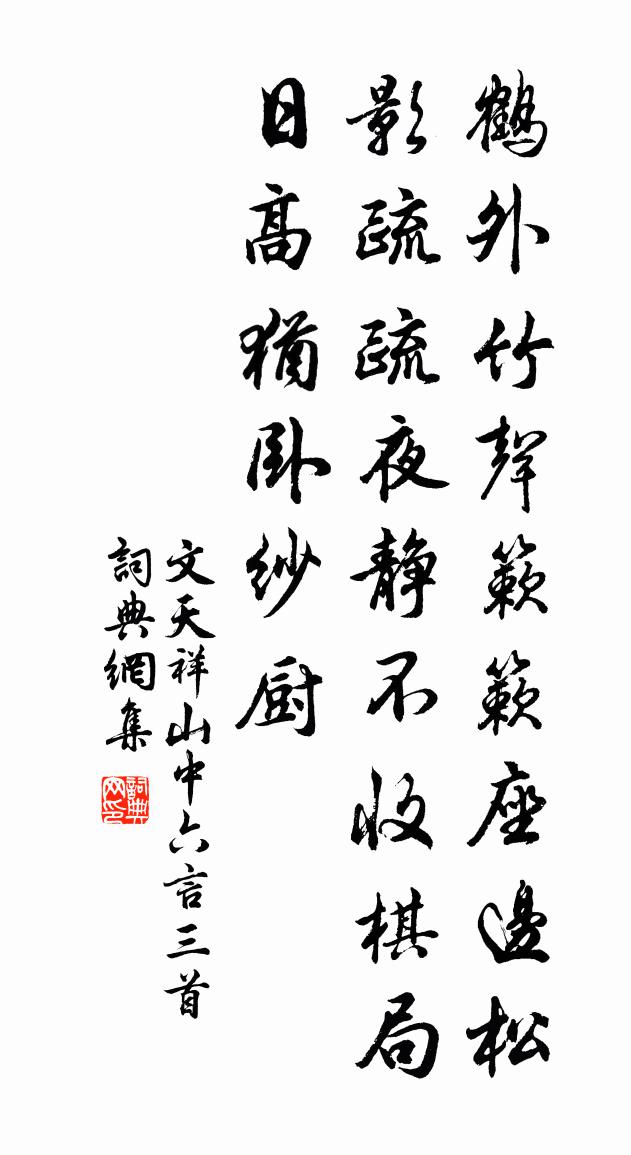 鶴外竹聲簌簌座邊松
影疏疏夜静不收棋局
日高猶卧紗厨
文天祥山中六言三首
詞典網集
詞典網印